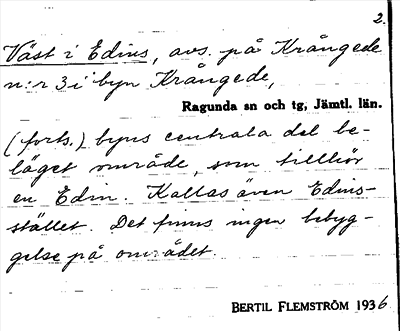 2.
Väst i Edins, avs. på Krångede
n:r 3 i byn Krångede,
Ragunda sn och tg, Jämtl. län.
(forts.) byns centrala del be-
läget område, som tillhör
en Edin. Kallas även Edins-
stället. Det finns ingen bebyg-
gelse på området.
BERTIL FLEMSTRÖM 1936